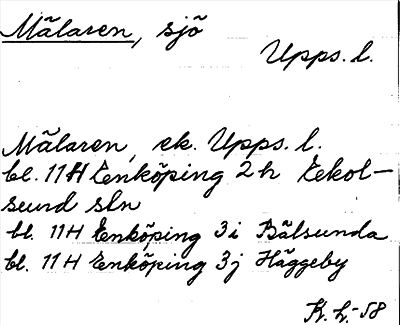 Mälaren, sjö
Upps. l.
Mälaren, ek. Upps. l.
bl. 11H Enköping 2h Ekol-
sund sln
bl. 11H Enköping 3i Bälsunda
bl. 11H Enköping 3j Häggeby
K. L. -58